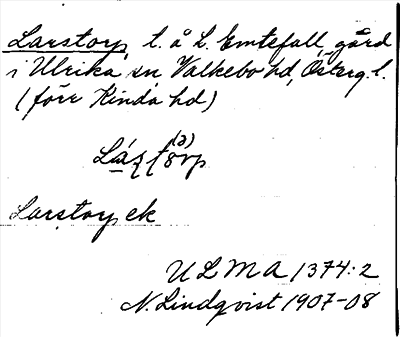 Larstorp t. å L. Emtefall, gård
i Ulrika sn Valkebo hd, Österg. l.
(förr Kinda hd)
Larstorp ek
ULMA 1374:2
N. Lindqvist 1907-08